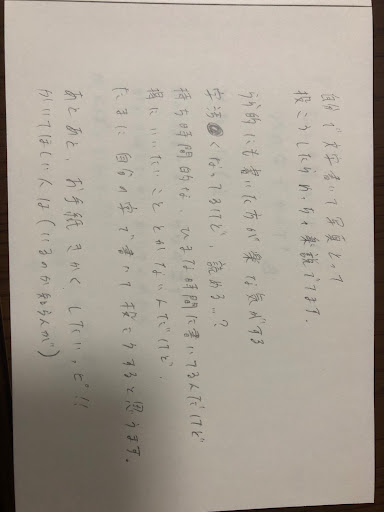 自分で文字書いて写真とって
投こうしたら でてます。
的にも書いた方が楽な気がする
字汚くなってるけど、読める…?
待ち時間的な、ひまな時間に書いてるんだけど
特にいいたいこととかないんだけど、
たまに自分の字で書いて投こうすると思います。
あとあと、お手紙きかく、したい、ど!!
かいてほしい人は(いるのか知らんが)